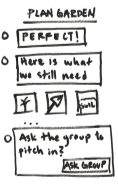 PLAN GARDEN
PERFECT!
Here is what
we still need
...
Ask the group to
pitch in?
ASK GROUP